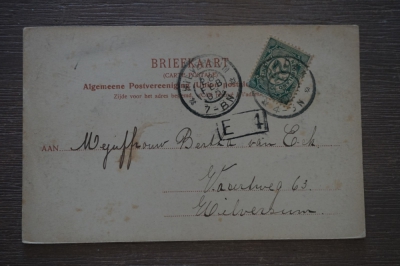 BRIEFKAART
(CARTE POSTALE)
Algemeene Postvereeniging (Union postale
Zijde voor het adres
7-8N
E 4
AAN Mejuffrouw Bertha van Eck.
Vaartweg 63.
Hilversum.